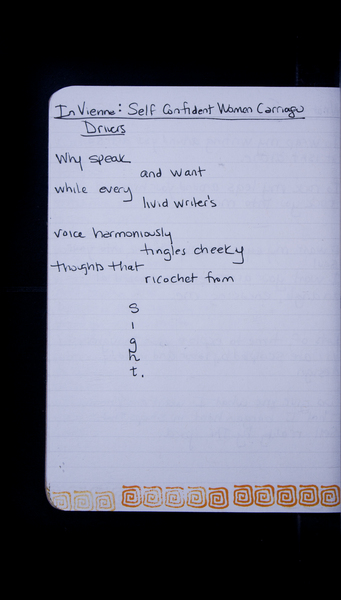 In Vienne: Self Confident Women Carriage
Drivers
Why speak
and want
while every
livid writer's
voice hermoniously
tingles cheeky
thoughts that
ricochet from
S
i
g
h
t.